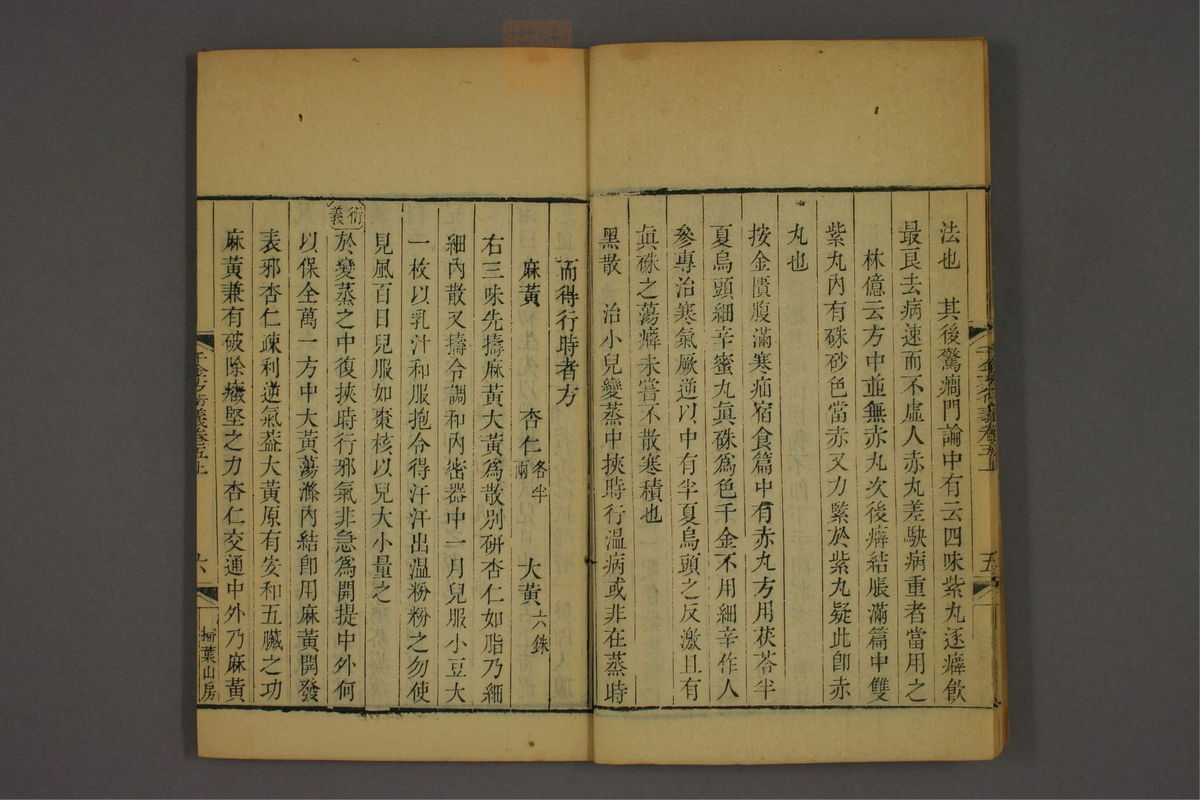 法也　其後驚癎門論中有云四味紫丸逐癖飲
最良去病速而不虛人赤丸差駃病重者當用之
林億云方中並無赤丸次後癖結脹滿篇中雙
紫丸內有硃砂色當赤又力緊於紫丸疑此卽赤
丸也
按金匱腹滿寒疝宿食篇中有赤丸方用茯苓半
夏烏頭細辛蜜丸眞硃爲色千金不用細辛作人
參專治寒氣厥逆以中有半夏烏頭之反激且有
眞硃之蕩癖未嘗不散寒積也
黑散　治小兒變蒸中挾時行溫病或非在蒸時
千金方衍義卷五上
五
而得行時者方
麻黃　杏仁各半兩　大黃六銖
右三味先擣麻黃大黃爲散別硏杏仁如脂乃細
細內散又擣令調和內密器中一月兒服小豆大
一枚以乳汁和服抱令得汗汗出溫粉粉之勿使
見風百日兒服如棗核以兒大小量之
衍義於變蒸之中復挾時行邪氣非急爲開提中外何
以保全萬一方中大黃蕩滌內結卽用麻黃開發
表邪杏仁疎利逆氣葢大黃原有安和五臟之功
麻黃兼有破除癥堅之力杏仁交通中外乃麻黃
千金方衍義卷五上
六
掃葉山房